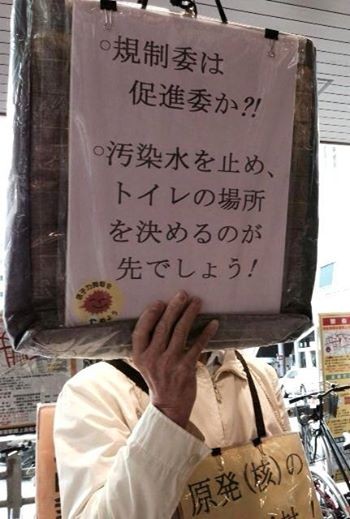 ○規制委は
促進委か?!
○汚染水を止め、
トイレの場所
を決めるのが
先でしょう!
原発(核)の